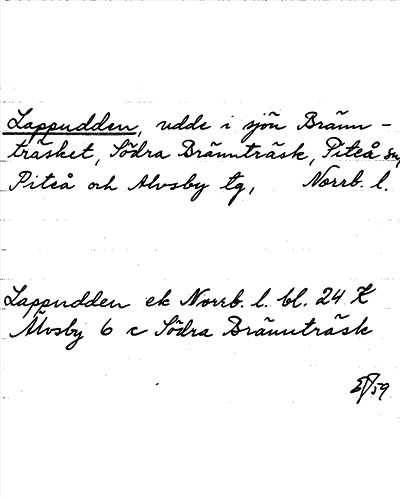 Lappudden, udde i sjön Bränn-
träsket, Södra Bränträsk, Piteå sn,
Piteå och Älvsby tg, Norrb. l.
Lappudden ek Norrb. l. bl. 24 K
Älvsby 6 c Södra Bränträsk
59